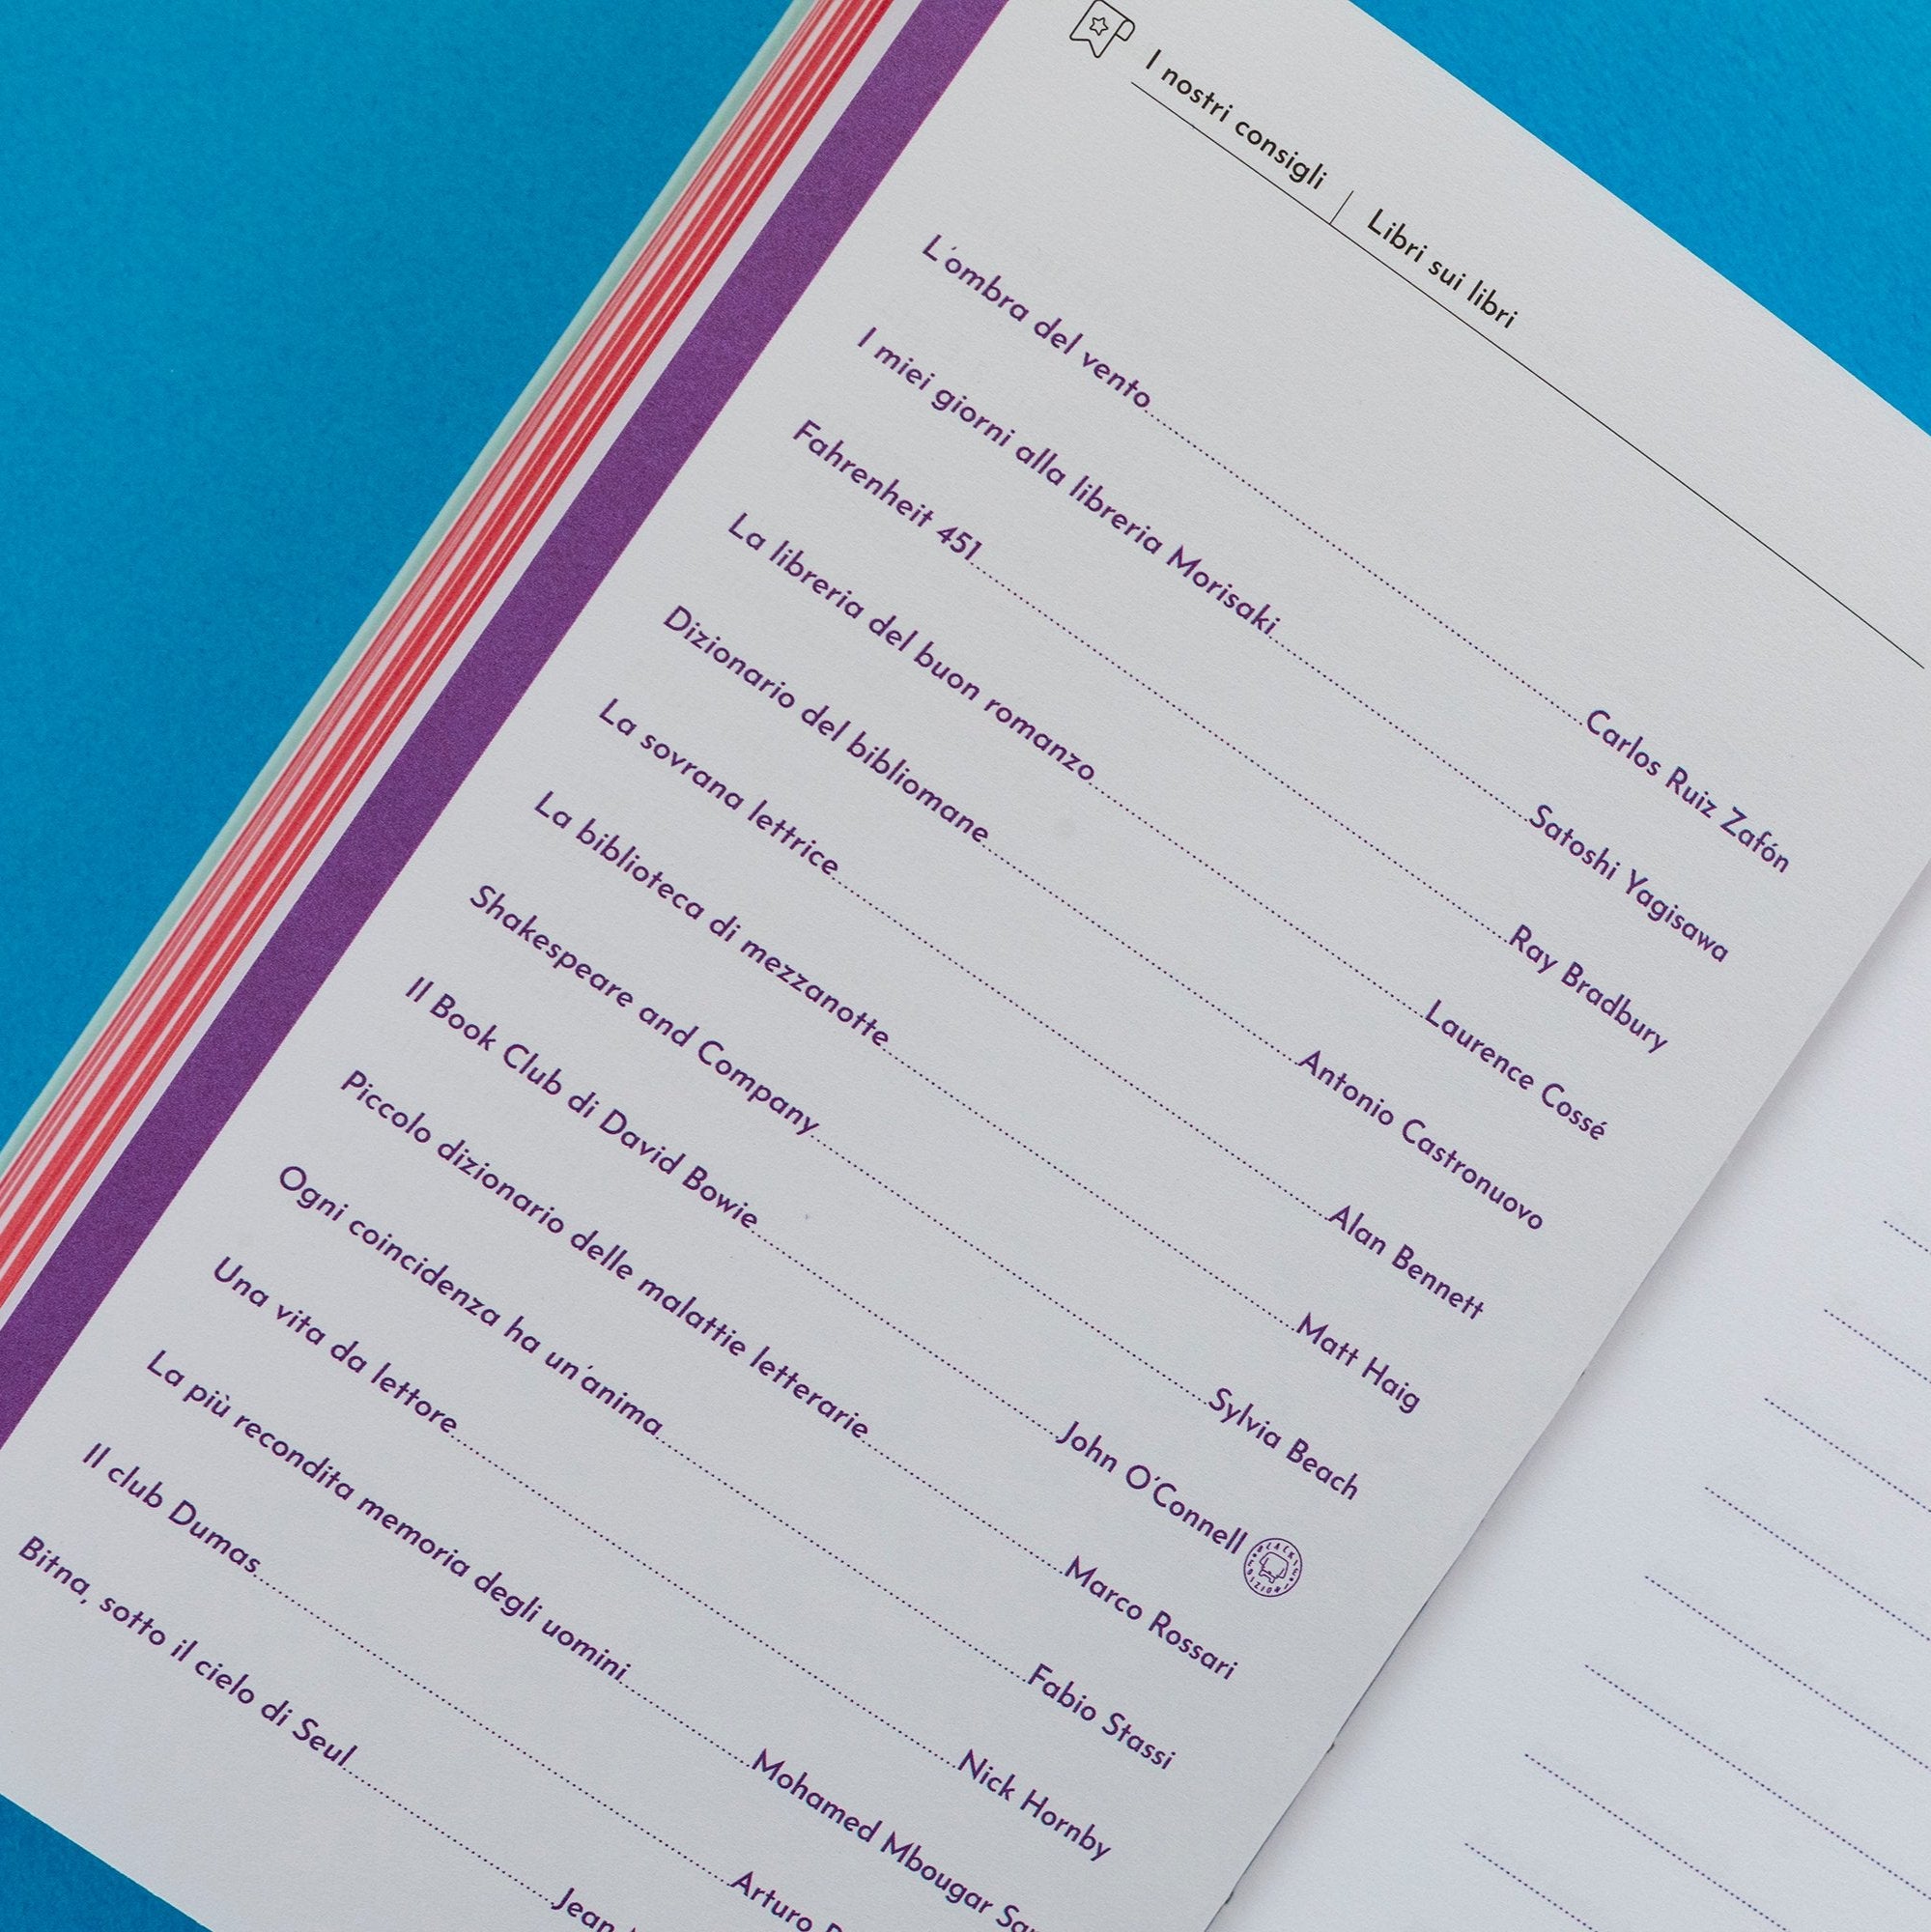 I nostri consigli | Libri sui libri
L'ombra del vento Carlos Ruiz Zafón
I miei giorni alla libreria Morisaki Satoshi Yagisawa
Fahrenheit 451 Ray Bradbury
La libreria del buon romanzo Laurence Cossé
Dizionario del bibliomane Antonio Castronuovo
La sovrana lettrice Alan Bennett
La biblioteca di mezzanotte Matt Haig
Shakespeare and Company Sylvia Beach
Il Book Club di David Bowie John O'Connell
BLACKIE EDIZIONI
Piccolo dizionario delle malattie letterarie Marco Rossari
Ogni coincidenza ha un'anima Fabio Stassi
Una vita da lettore Nick Hornby
La più recondita memoria degli uomini Mohamed Mbougar
Il club Dumas Arturo
Bitna, sotto il cielo di Seul Jean